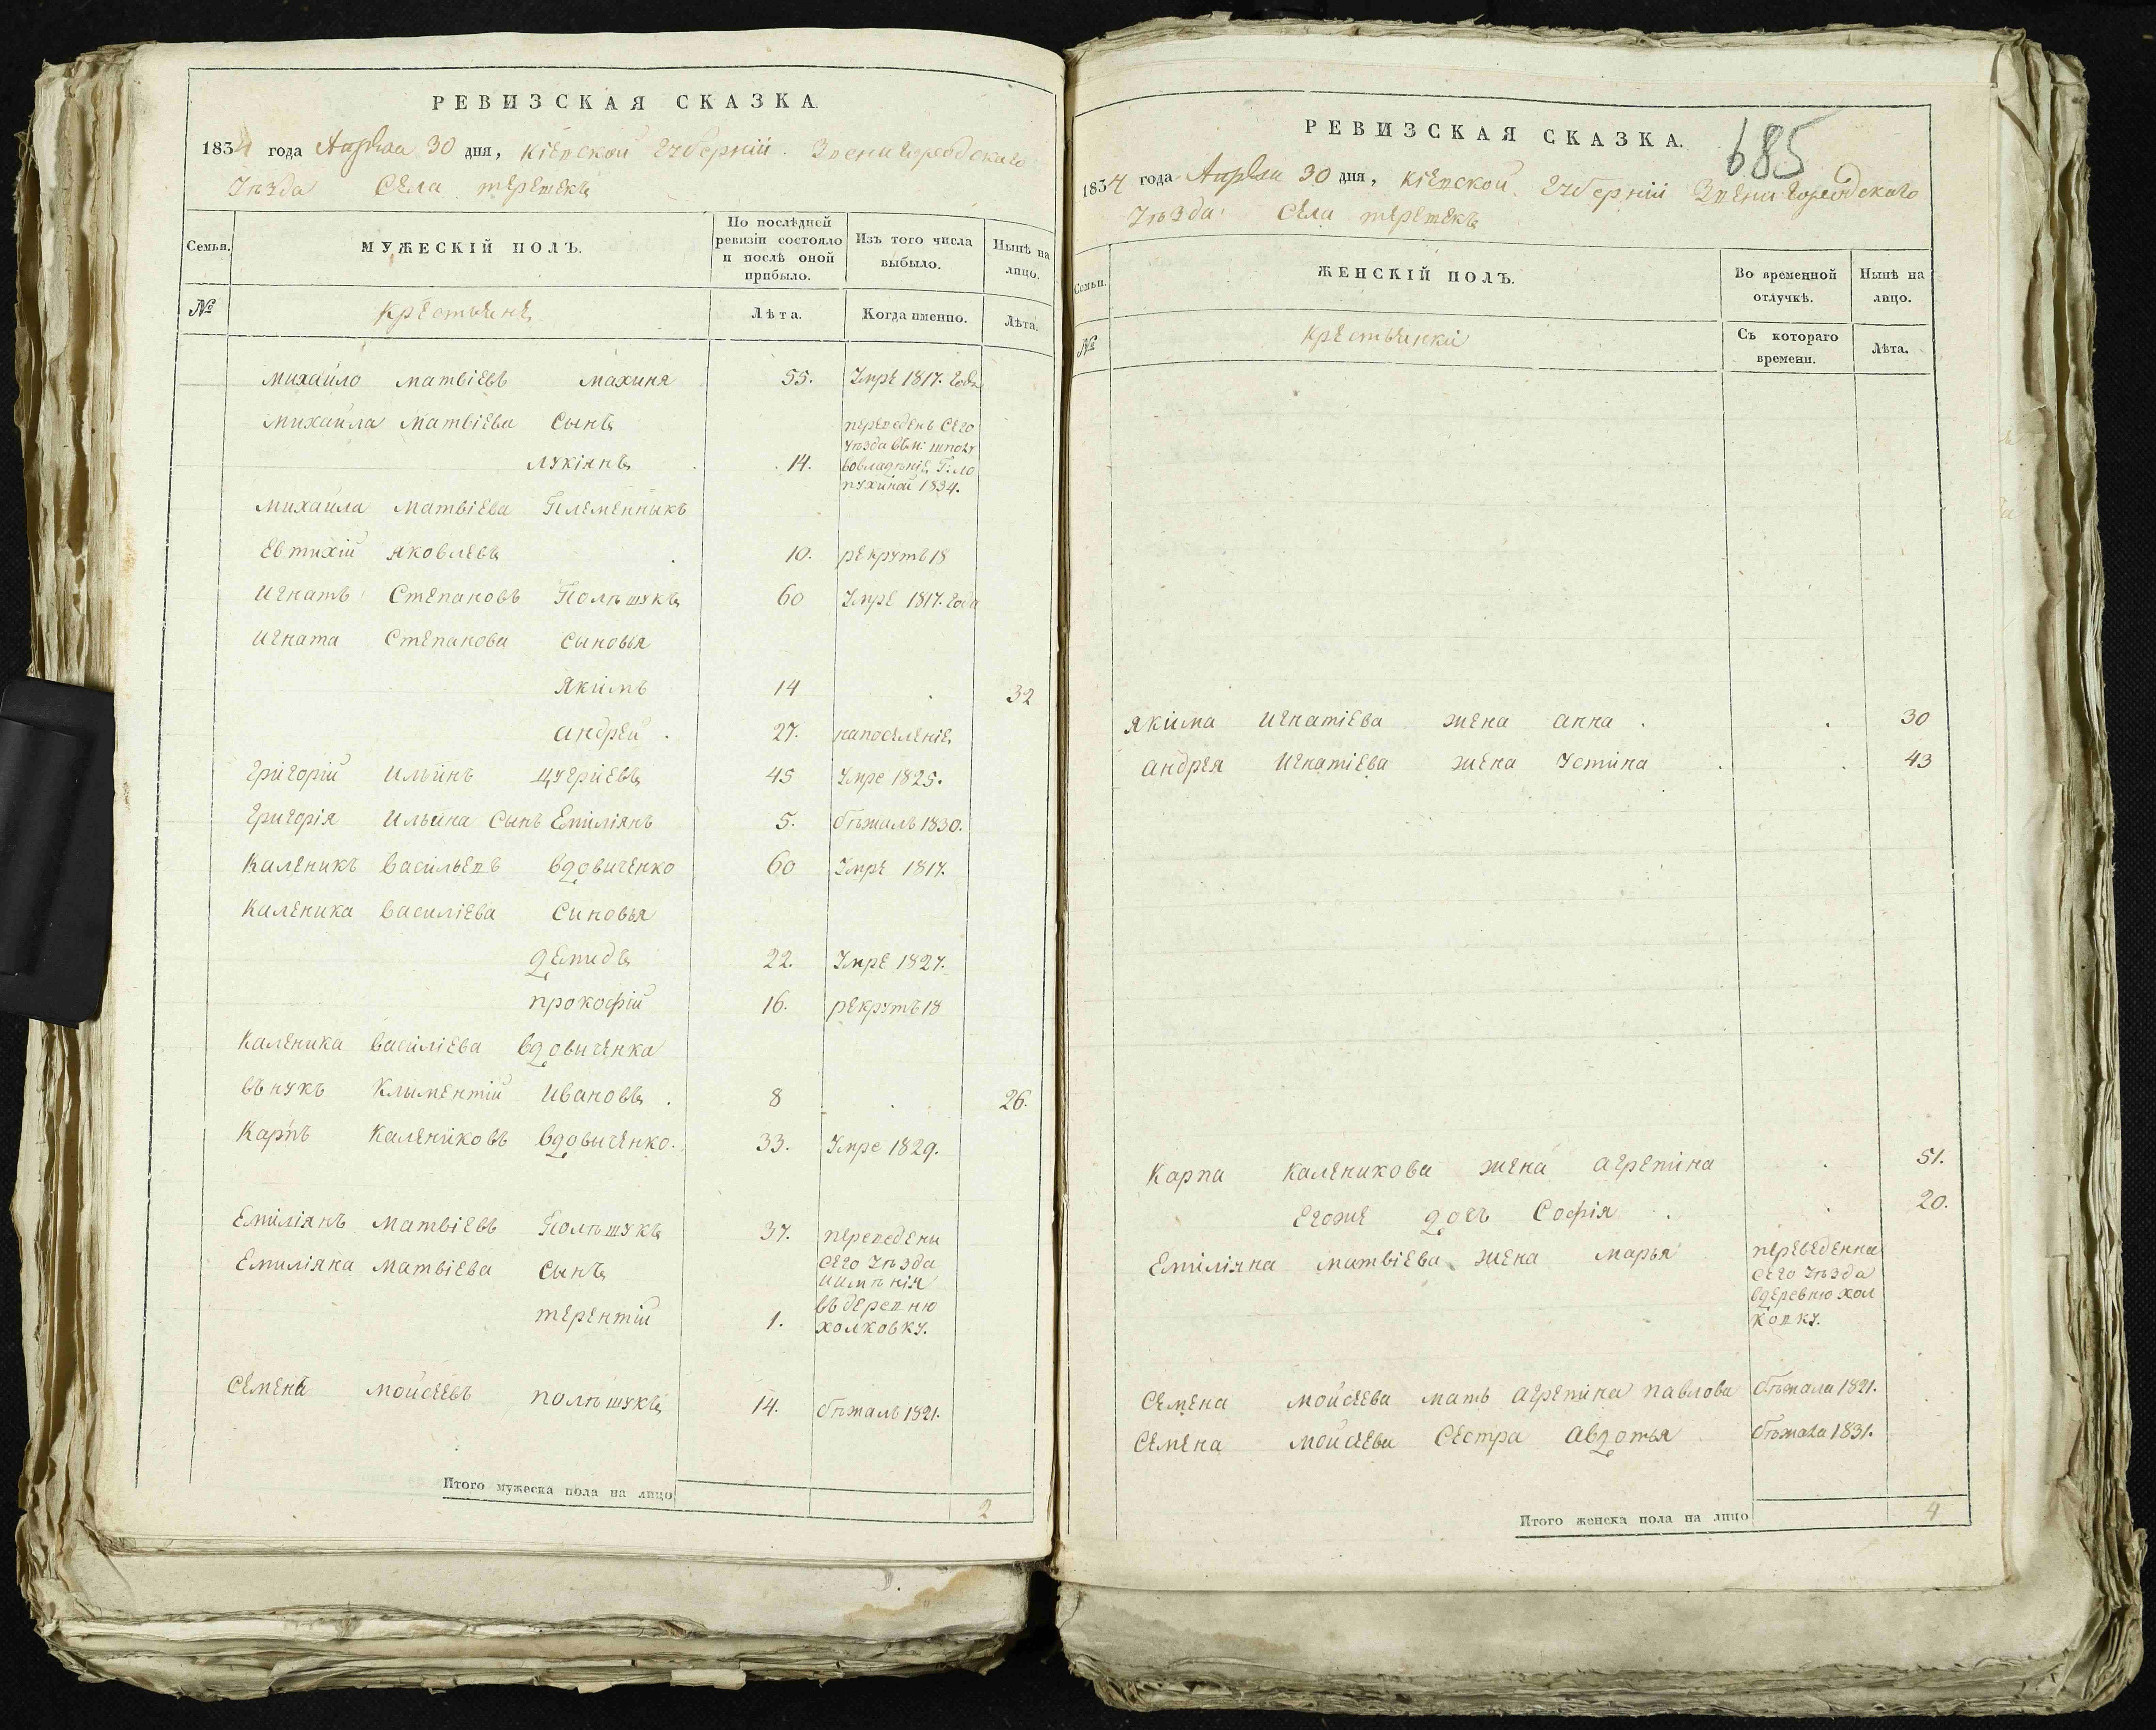 РЕВИЗСКАЯ СКАЗКА.
1834 года Апреля 30 дня, Кіевской Губерніи Звенигородского
Уѣзда Села Терешекъ
Семьи.
МУЖЕСКІЙ ПОЛЪ.
По послѣдней ревизіи состояло и послѣ оной прибыло.
Изъ того числа выбыло.
Нынѣ на лицо.
№
Крестьяне
Лѣта.
Когда именно.
Лѣта.
Михайло Матвіевъ Махиня 55. Умре 1817. года
Михайла Матвіева Сынъ
Лукіянъ 14.
переведенъ сего
уѣзда въ м: шполу
вовладѣніе Г: ло
пухиной 1834.
Михайла Матвіева Племенныкъ
Евтихій Яковлевъ 10. рекрутъ 18
Игнатъ Степановъ Полѣшукъ 60 Умре 1817. года
Игната Степанова Сыновья
Якимъ 14 32
Андрей 27. напоселеніе
Григорій Ильинъ Цугріевъ 45 Умре 1825.
Григорія Ильина Сынъ Емиліянъ 5. бѣжалъ 1830.
Каленикъ Васильевъ Вдовиченко 60 Умре 1817.
Каленика Василіева Синовья
Демидъ 22. Умре 1827.
Прокофій 16. рекрутъ 18
Каленика Василіева Вдовиченка
Внукъ Клыментій Ивановъ 8 26.
Карпъ Калениковъ Вдовыченко. 33. Умре 1829.
Емиліянъ Матвіевъ Полѣшукъ 37.
Емиліяна Матвіева Сынъ
Терентій 1.
переведени
сего Уѣзда
имѣнія
въ деревню
холковку.
Семенъ Мойсеевъ Полѣшукъ 14. бѣжалъ 1821.
Итого мужеска пола на лицо 2
685
РЕВИЗСКАЯ СКАЗКА.
1834 года Апреля 30 дня, Кіевской Губерніи Звенигородского
Уѣзда Села Терешекъ
Семьи.
ЖЕНСКІЙ ПОЛЪ.
Во временной отлучкѣ.
Нынѣ на лицо.
№
Крестьянки
Съ котораго времени.
Лѣта.
Якима Игнатіева жена Анна 30
Андрея Игнатіева жена Устина 43
Карпа Каленикова жена Агрепина 51.
Егоже дочь Софія 20.
Емиліяна Матвіева жена Марья
переведенна
сего Уѣзда
вдеревню хол
ковку.
Семена Мойсеева мать Агрепина Павлова бѣжала 1821.
Семена Мойсеева Сестра Авдотья бѣжала 1831.
Итого женска пола на лицо 4